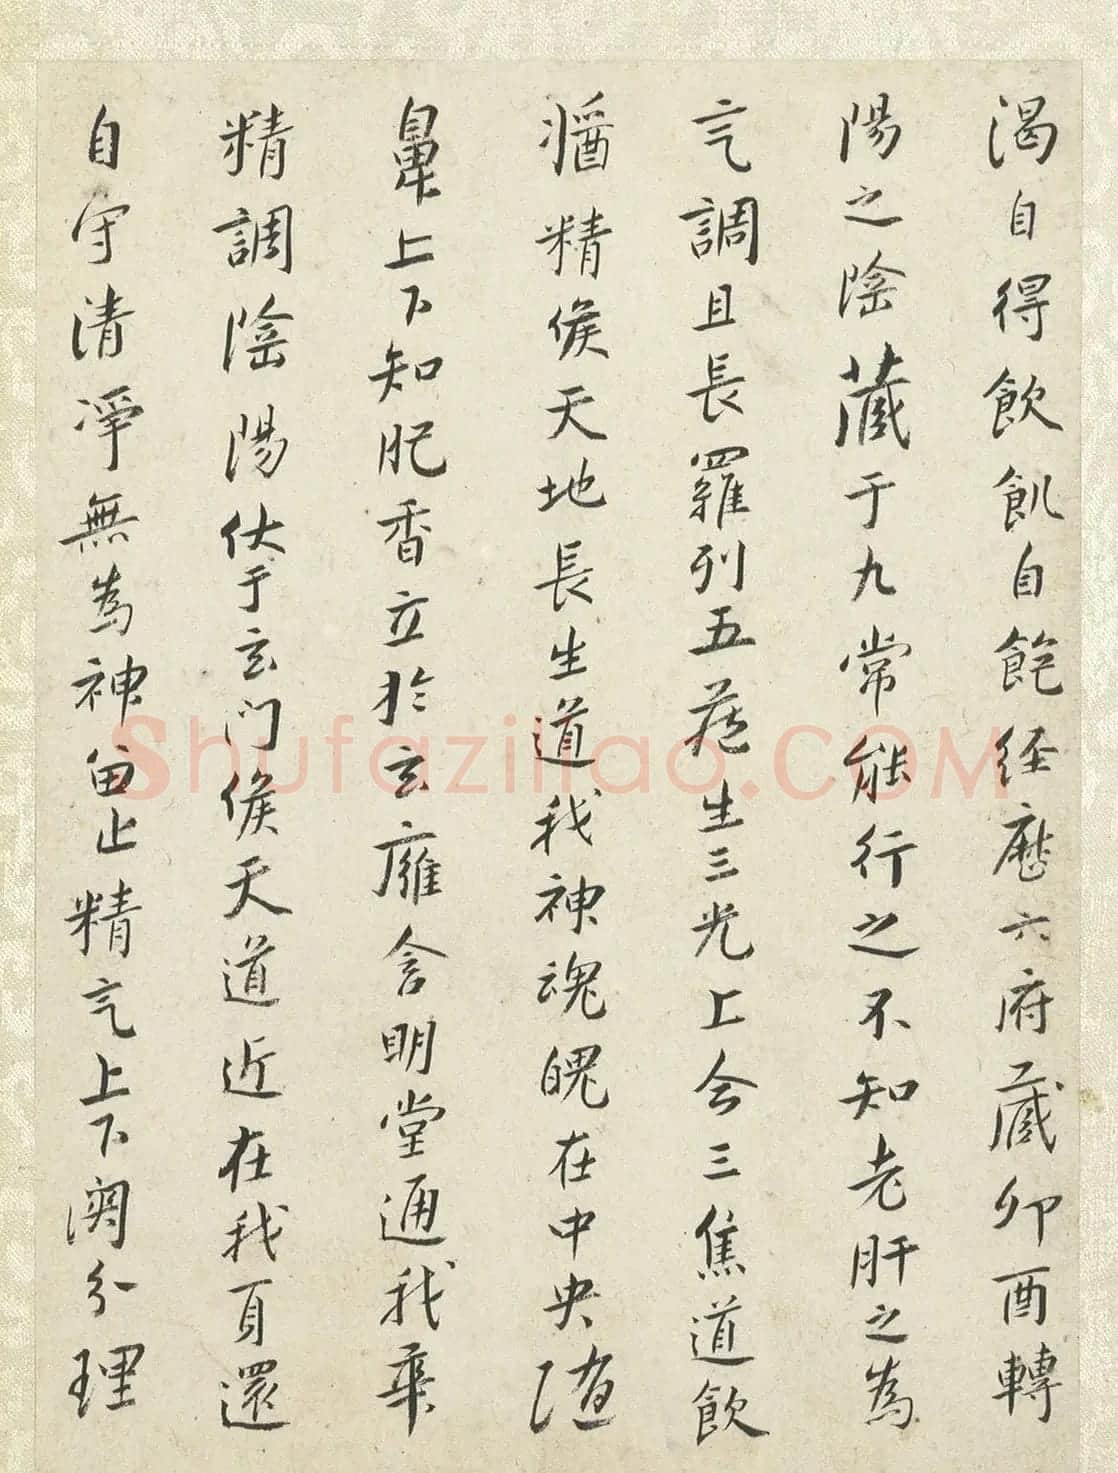 渴自得飲飢自飽經歷六府藏卯酉轉
陽之陰藏于九常能行之不知老肝之為
氣調且長羅列五藏生三光上合三焦道飲
漿精候天地長生道我神魂魄在中央隨
鼻上下知肥香立於玄膺含明堂通我華
精調陰陽伏于玄門候天道近在我身還
自守清淨無為神留止精氣上下關分理
Shufaziliao.COM